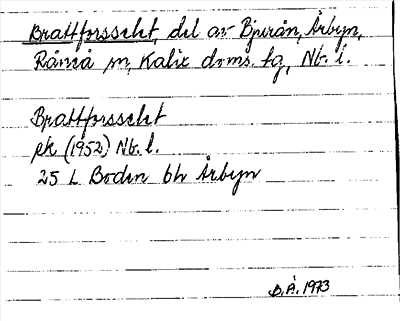 Brattforsselet, del av Bjurån, Årbyn,
Råneå sn, Kalix doms. tg, Nb. l.
Brattforsselet
ek (1952) Nb. l.
25 L Boden bl. Årbyn
D.Å. 1973